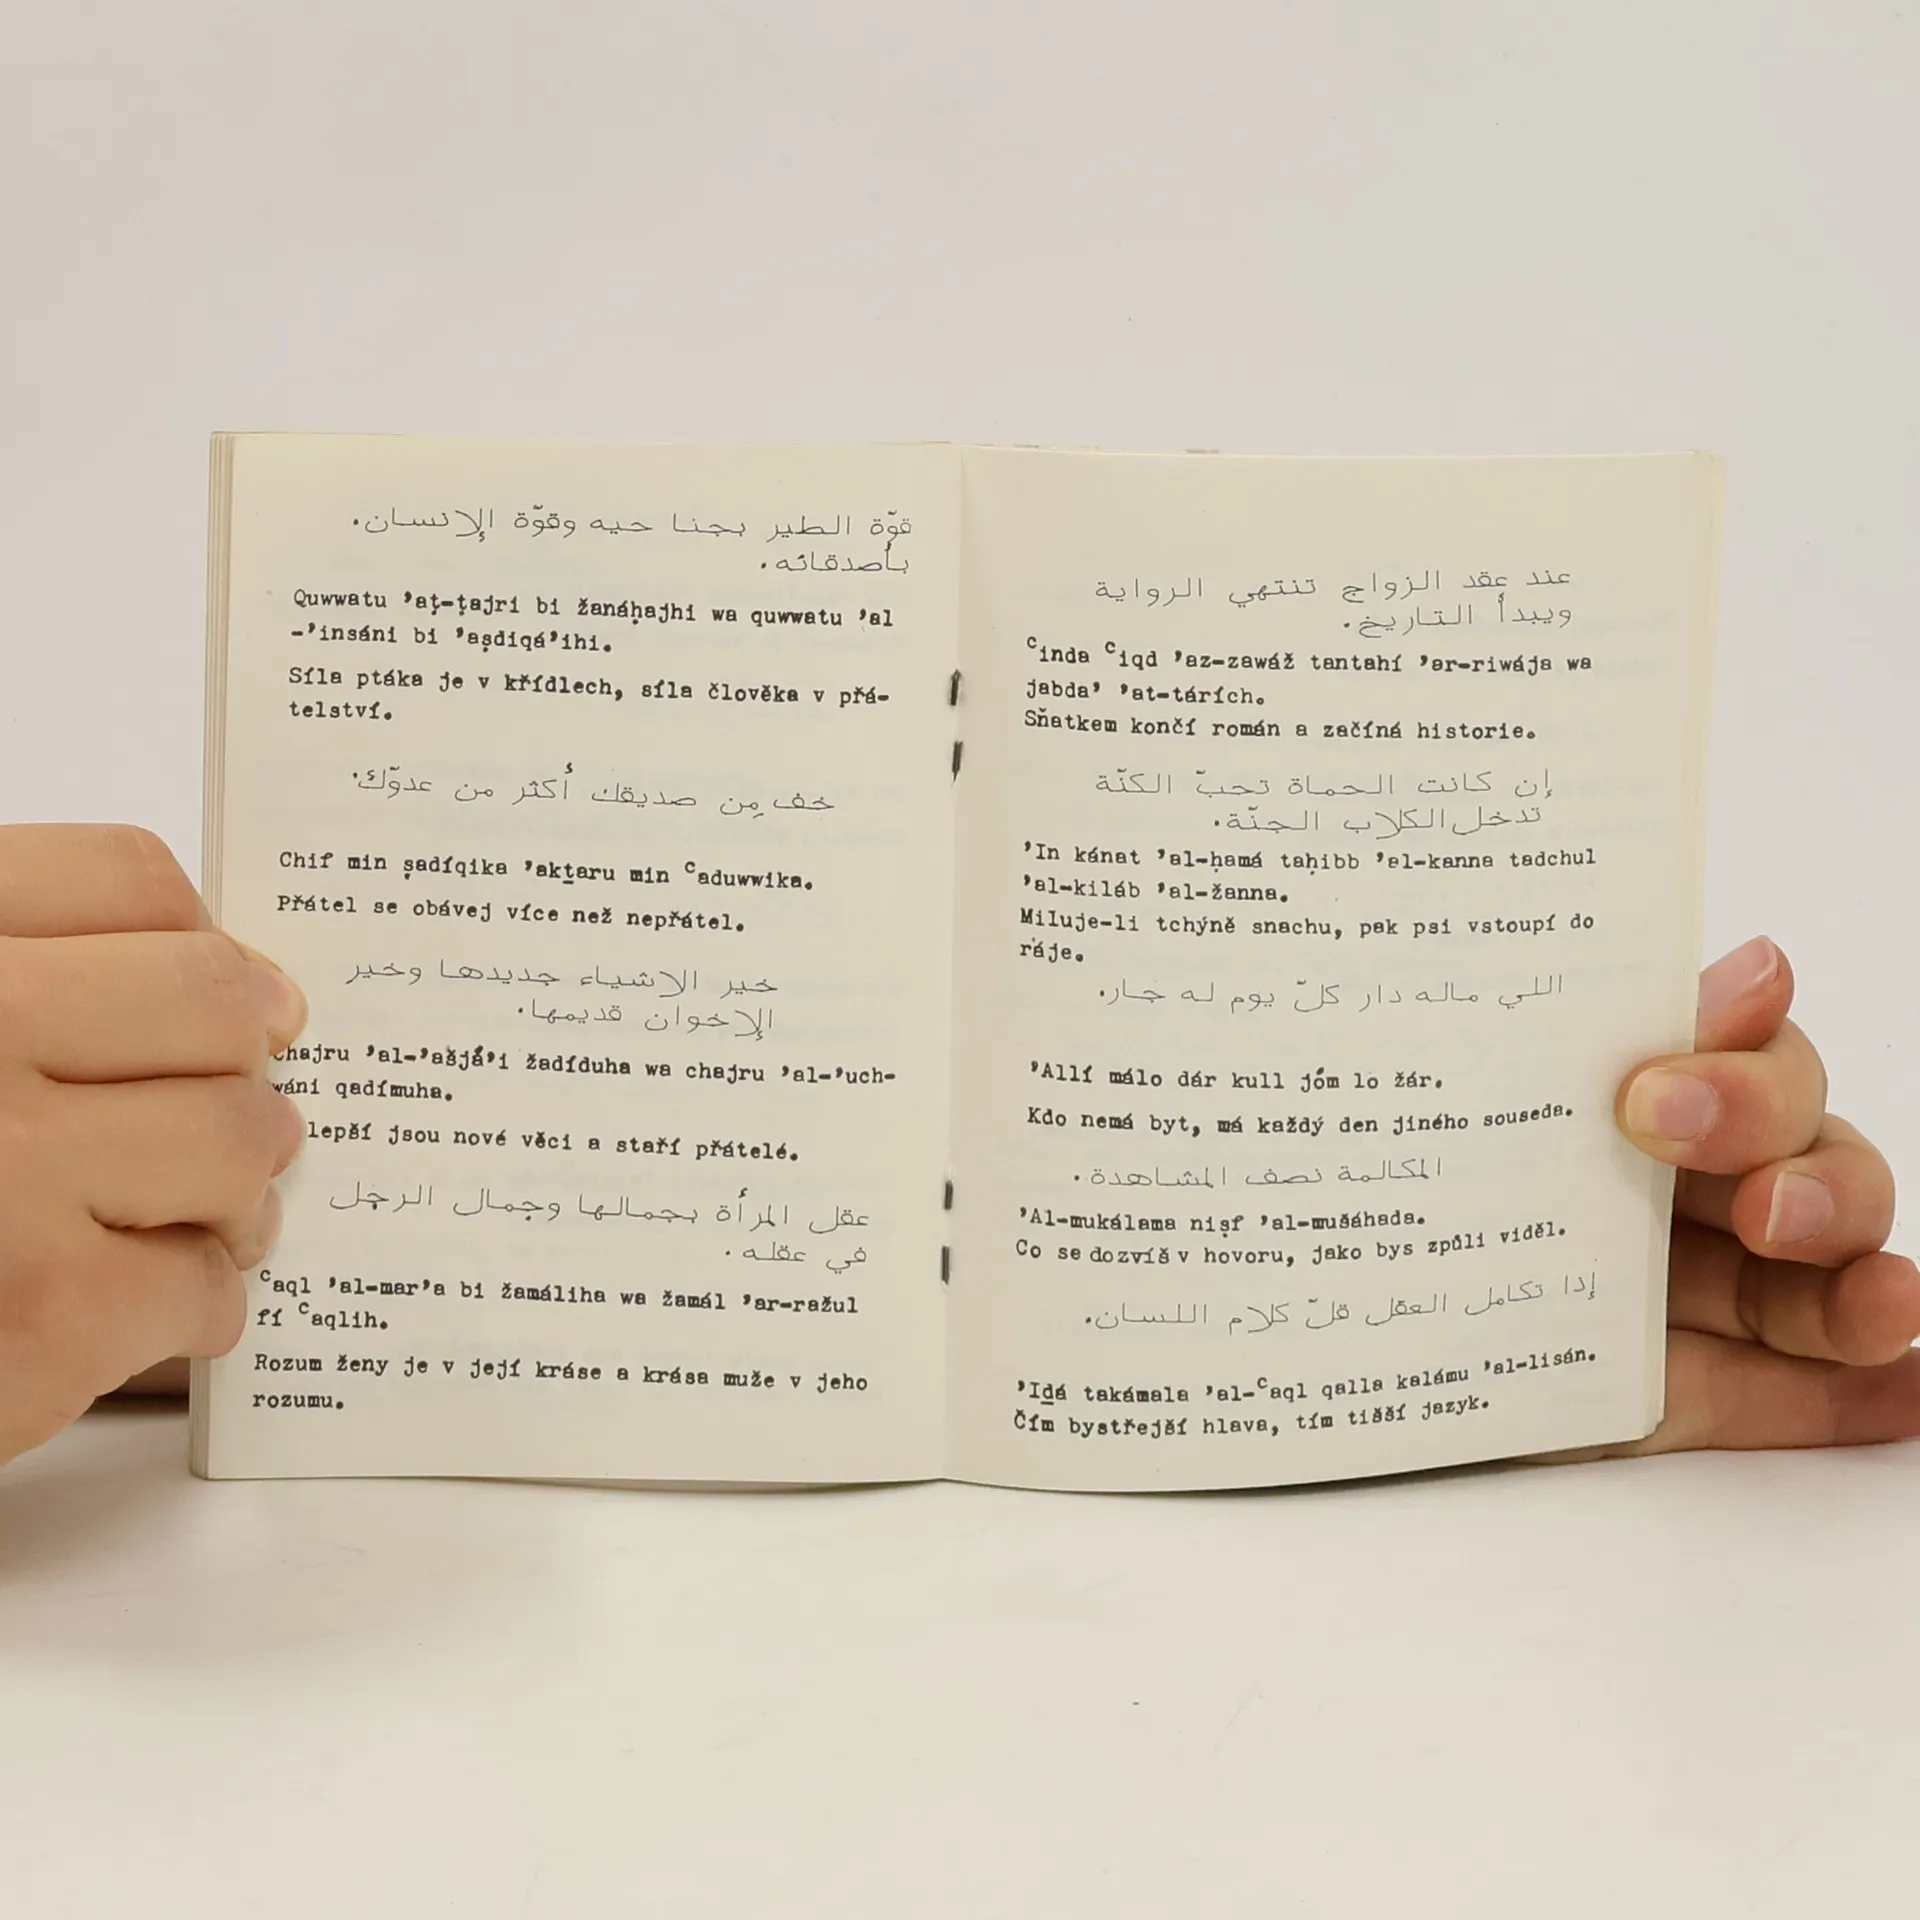 قوّة الطير بجنا حيه وقوّة الإنسان.
بأصدقائه.
Quwwatu ’aṭ-ṭajri bi žanáḥajhi wa quwwatu ’al
-’insáni bi ’aṣdiqá’ihi.
Síla ptáka je v křídlech, síla člověka v přá-
telství.
خف مِن صديقك أكثر من عدوّك.
Chif min ṣadíqika ’akṯaru min ᶜaduwwika.
Přátel se obávej více než nepřátel.
خير الاشياء جديدها وخير
الإخوان قديمها.
chajru ’al-’ašjá’i žadíduha wa chajru ’al-’uch-
wáni qadímuha.
lepší jsou nové věci a staří přátelé.
عقل المرأة بجمالها وجمال الرجل
في عقله.
ᶜaql ’al-mar’a bi žamáliha wa žamál ’ar-ražul
fí ᶜaqlih.
Rozum ženy je v její kráse a krása muže v jeho
rozumu.
عند عقد الزواج تنتهي الرواية
ويبدأ التاريخ.
ᶜinda ᶜiqd ’az-zawáž tantahí ’ar-riwája wa
jabda’ ’at-tárích.
Sňatkem končí román a začíná historie.
إن كانت الحماة تحبّ الكنّة
تدخل الكلاب الجنّة.
’In kánat ’al-ḥamá taḥibb ’el-kanna tadchul
’al-kiláb ’al-žanna.
Miluje-li tchýně snachu, pak psi vstoupí do
ráje.
اللي ماله دار كلّ يوم له جار.
’Allí málo dár kull jóm lo žár.
Kdo nemá byt, má každý den jiného souseda.
المكالمة نصف المشاهدة.
’Al-mukálama niṣf ’al-mušáhada.
Co se dozvíš v hovoru, jako bys způli viděl.
إدا تكامل العقل قلّ كلام اللسان.
’Iḏá takámala ’al-ᶜaql qalla kalámu ’al-lisán.
Čím bystřejší hlava, tím tišší jazyk.